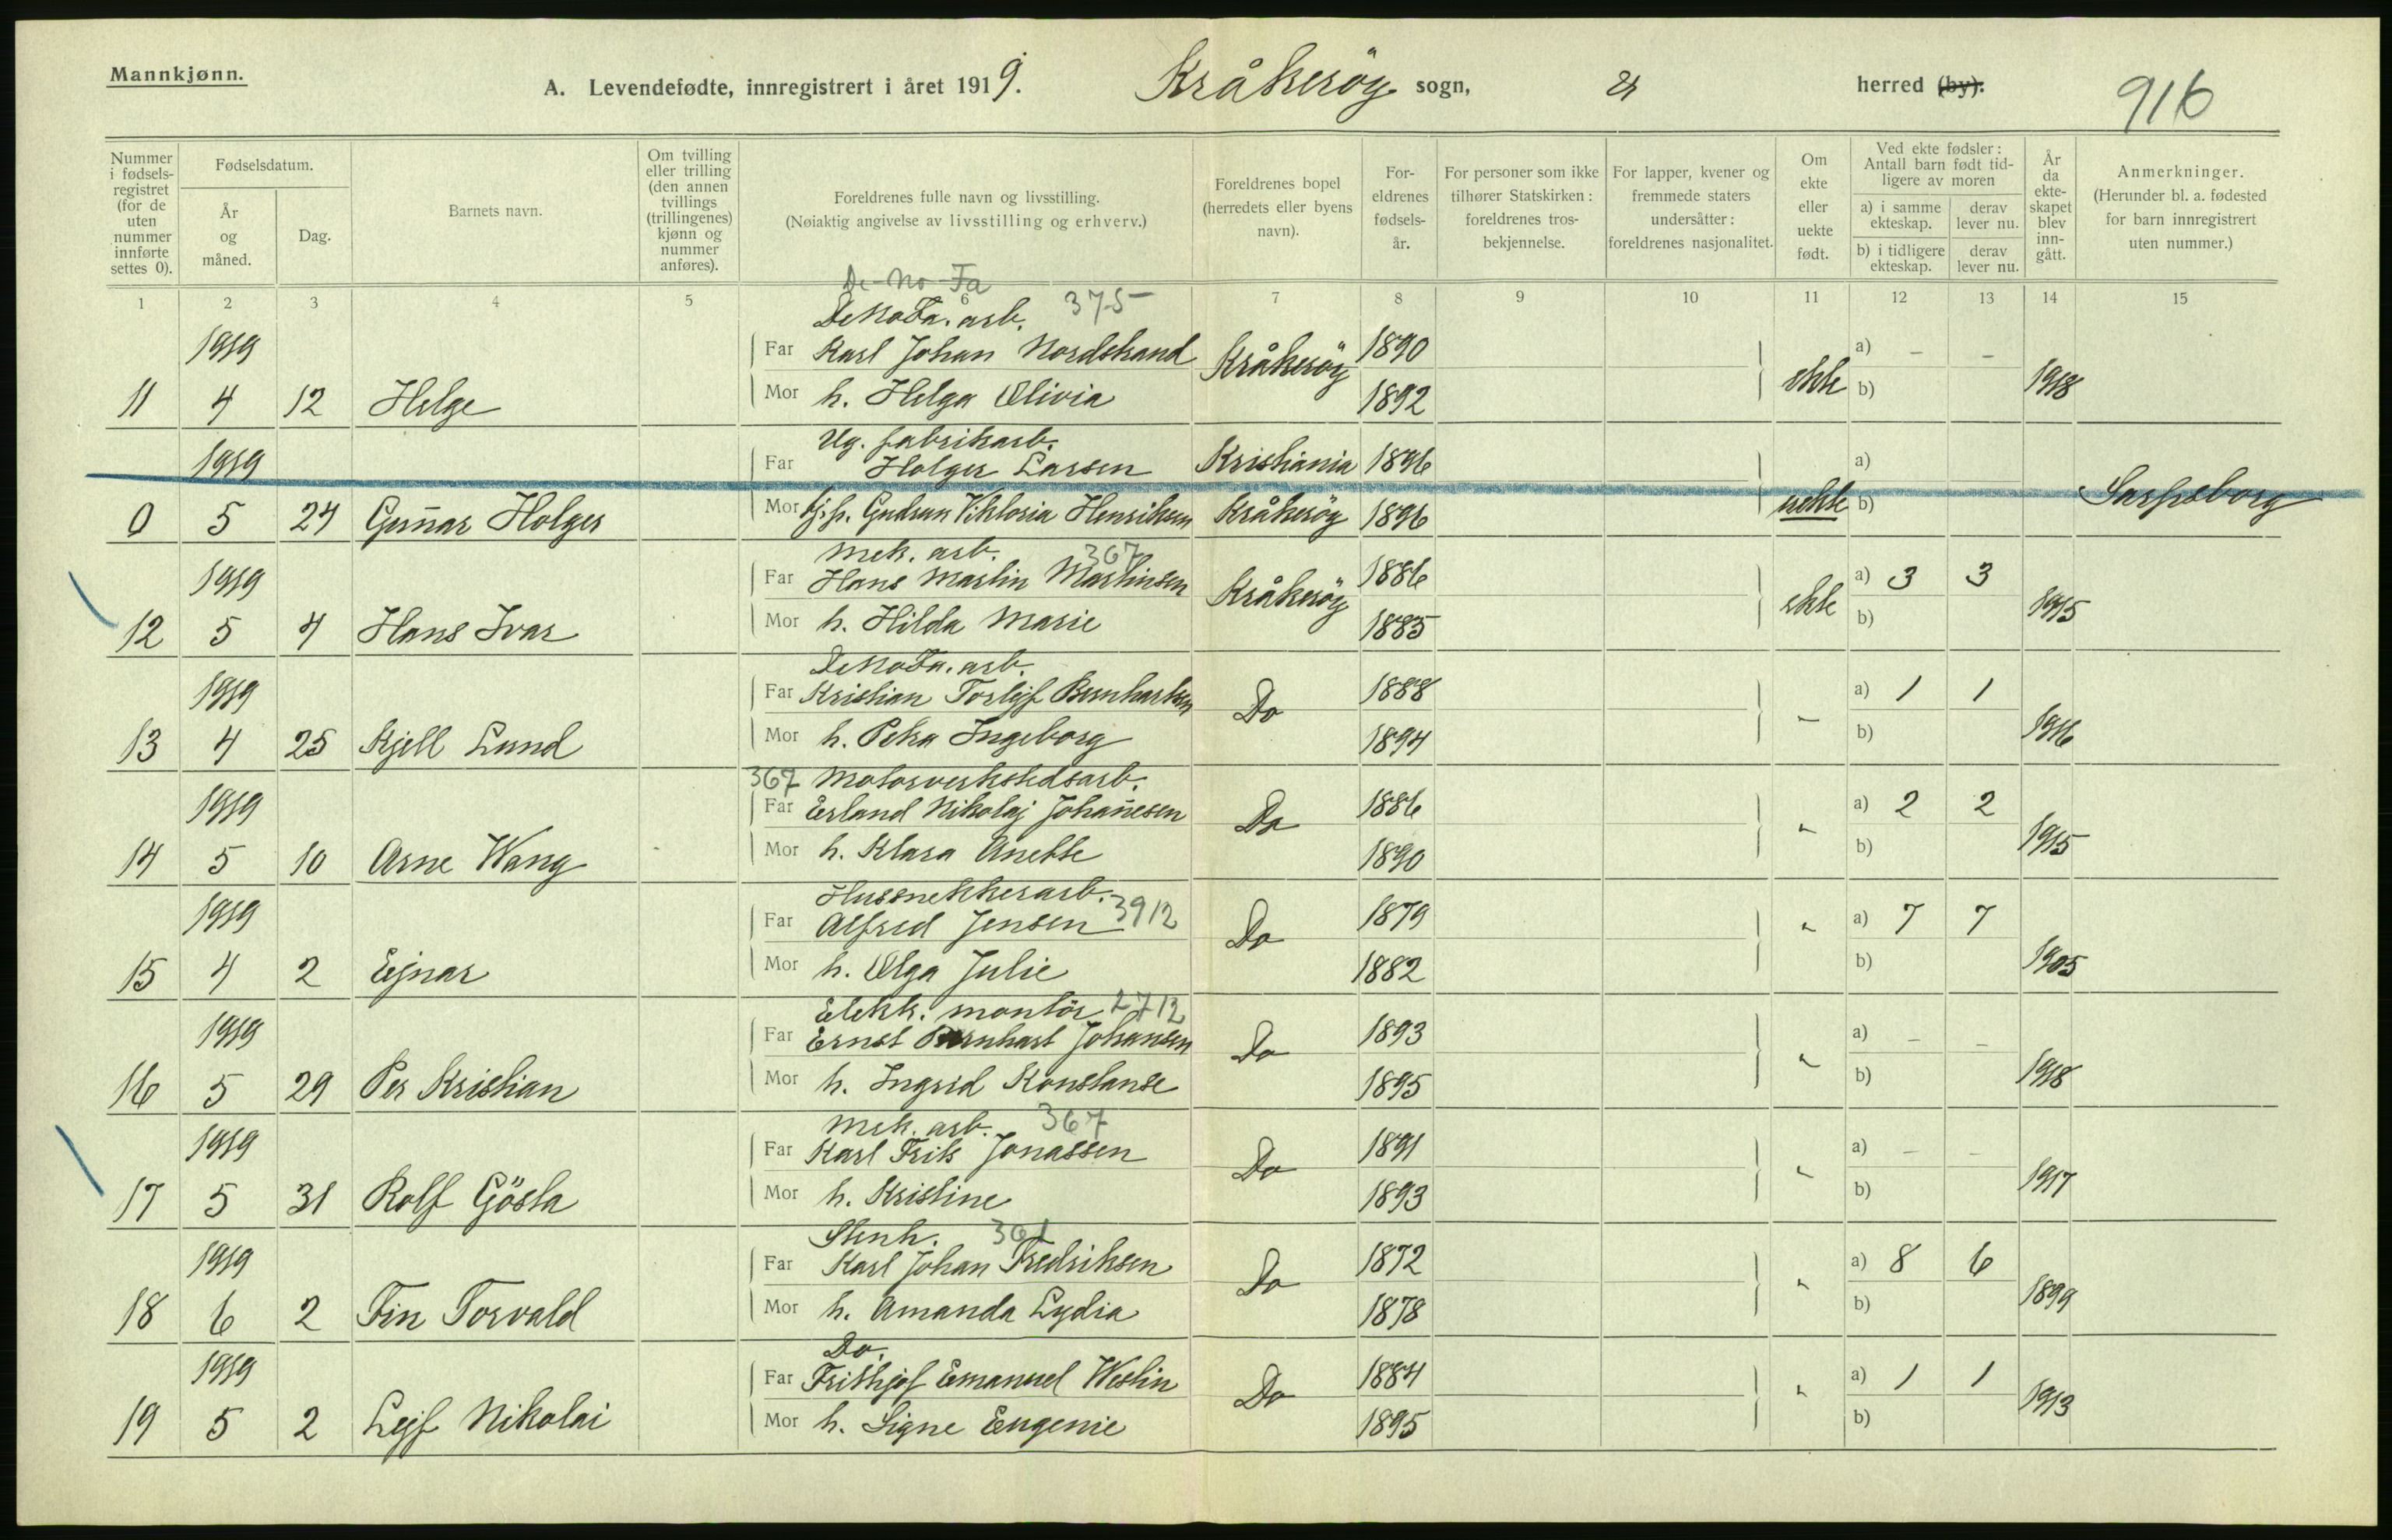 Mannkjønn.
A. Levendefødte, innregistrert i året 1919. Kråkerøy sogn, herred (by). 916
Nummer i fødsels-registret (for de uten nummer innførte settes 0).
Fødselsdatum.
År og måned.
Dag.
Barnets navn.
Om tvilling eller trilling (den annen tvillings (trillingenes) kjønn og nummer anføres).
Foreldrenes fulle navn og livsstilling.
(Nøiaktig angivelse av livsstilling og erhverv.)
Foreldrenes bopel (herredets eller byens navn).
For-eldrenes fødsels-år.
For personer som ikke tilhører Statskirken: foreldrenes tros-bekjennelse.
For lapper, kvener og fremmede staters undersåtter: foreldrenes nasjonalitet.
Om ekte eller uekte født.
Ved ekte fødsler: Antall barn født tid-ligere av moren
a) i samme ekteskap.
derav lever nu.
b) i tidligere ekteskap.
derav lever nu.
År da ekte-skapet blev inn-gått.
Anmerkninger.
(Herunder bl. a. fødested for barn innregistrert uten nummer.)
De-No-Fa
1 2 3 4 5 6 7 8 9 10 11 12 13 14 15
DeNoFa. arb. 375
1919 Far Karl Johan Nordstrand Kråkeröy 1890 a) – –
11 4 12 Helge Mor h. Helga Olivia 1892 ekte b) 1918
Ug. fabrikarb.
1919 Far Holger Larsen Kristiania 1896 a)
0 5 24 Gunnar Holger Mor Gudrun Viktoria Henriksen Kråkeröy 1896 uekte b) Sarpsborg
Mek. arb. 367
1919 Far Hans Martin Martinsen Kråkeröy 1886 a) 3 3
12 5 4 Hans Ivar Mor h. Hilda Marie 1885 ekte b) 1915
DeNoFa. arb.
1919 Far Kristian Torlejf Bernhartsen Do 1888 a) 1 1
13 4 25 Kjell Lund Mor h. Petra Ingeborg 1894 - b) 1916
367 Motorverkstedsarb.
1919 Far Erland Nikolaj Johannesen Do 1886 a) 2 2
14 5 10 Arne Wang Mor h. Klara Anette 1890 - b) 1915
Hussnekkerarb. 3912
1919 Far Alfred Jensen Do 1879 a) 7 7
15 4 2 Ejnar Mor h. Olga Julie 1882 - b) 1905
Elektr. montör 2712
1919 Far Ernst Bernhart Johansen Do 1893 a) – –
16 5 29 Per Kristian Mor h. Ingrid Konstanse 1895 - b) 1918
Mek. arb. 367
1919 Far Karl Frits Jonassen Do 1891 a) – –
17 5 31 Rolf Gösta Mor h. Kristine 1893 - b) 1917
Stenh. 361
1919 Far Karl Johan Fredriksen Do 1872 a) 8 6
18 6 2 Fin Torvald Mor h. Amanda Lydia 1878 - b) 1899
Do.
1919 Far Frithjof Emanuel Westin Do 1884 a) 1 1
19 5 2 Lejf Nikolai Mor h. Signe Eugenie 1895 - b) 1913